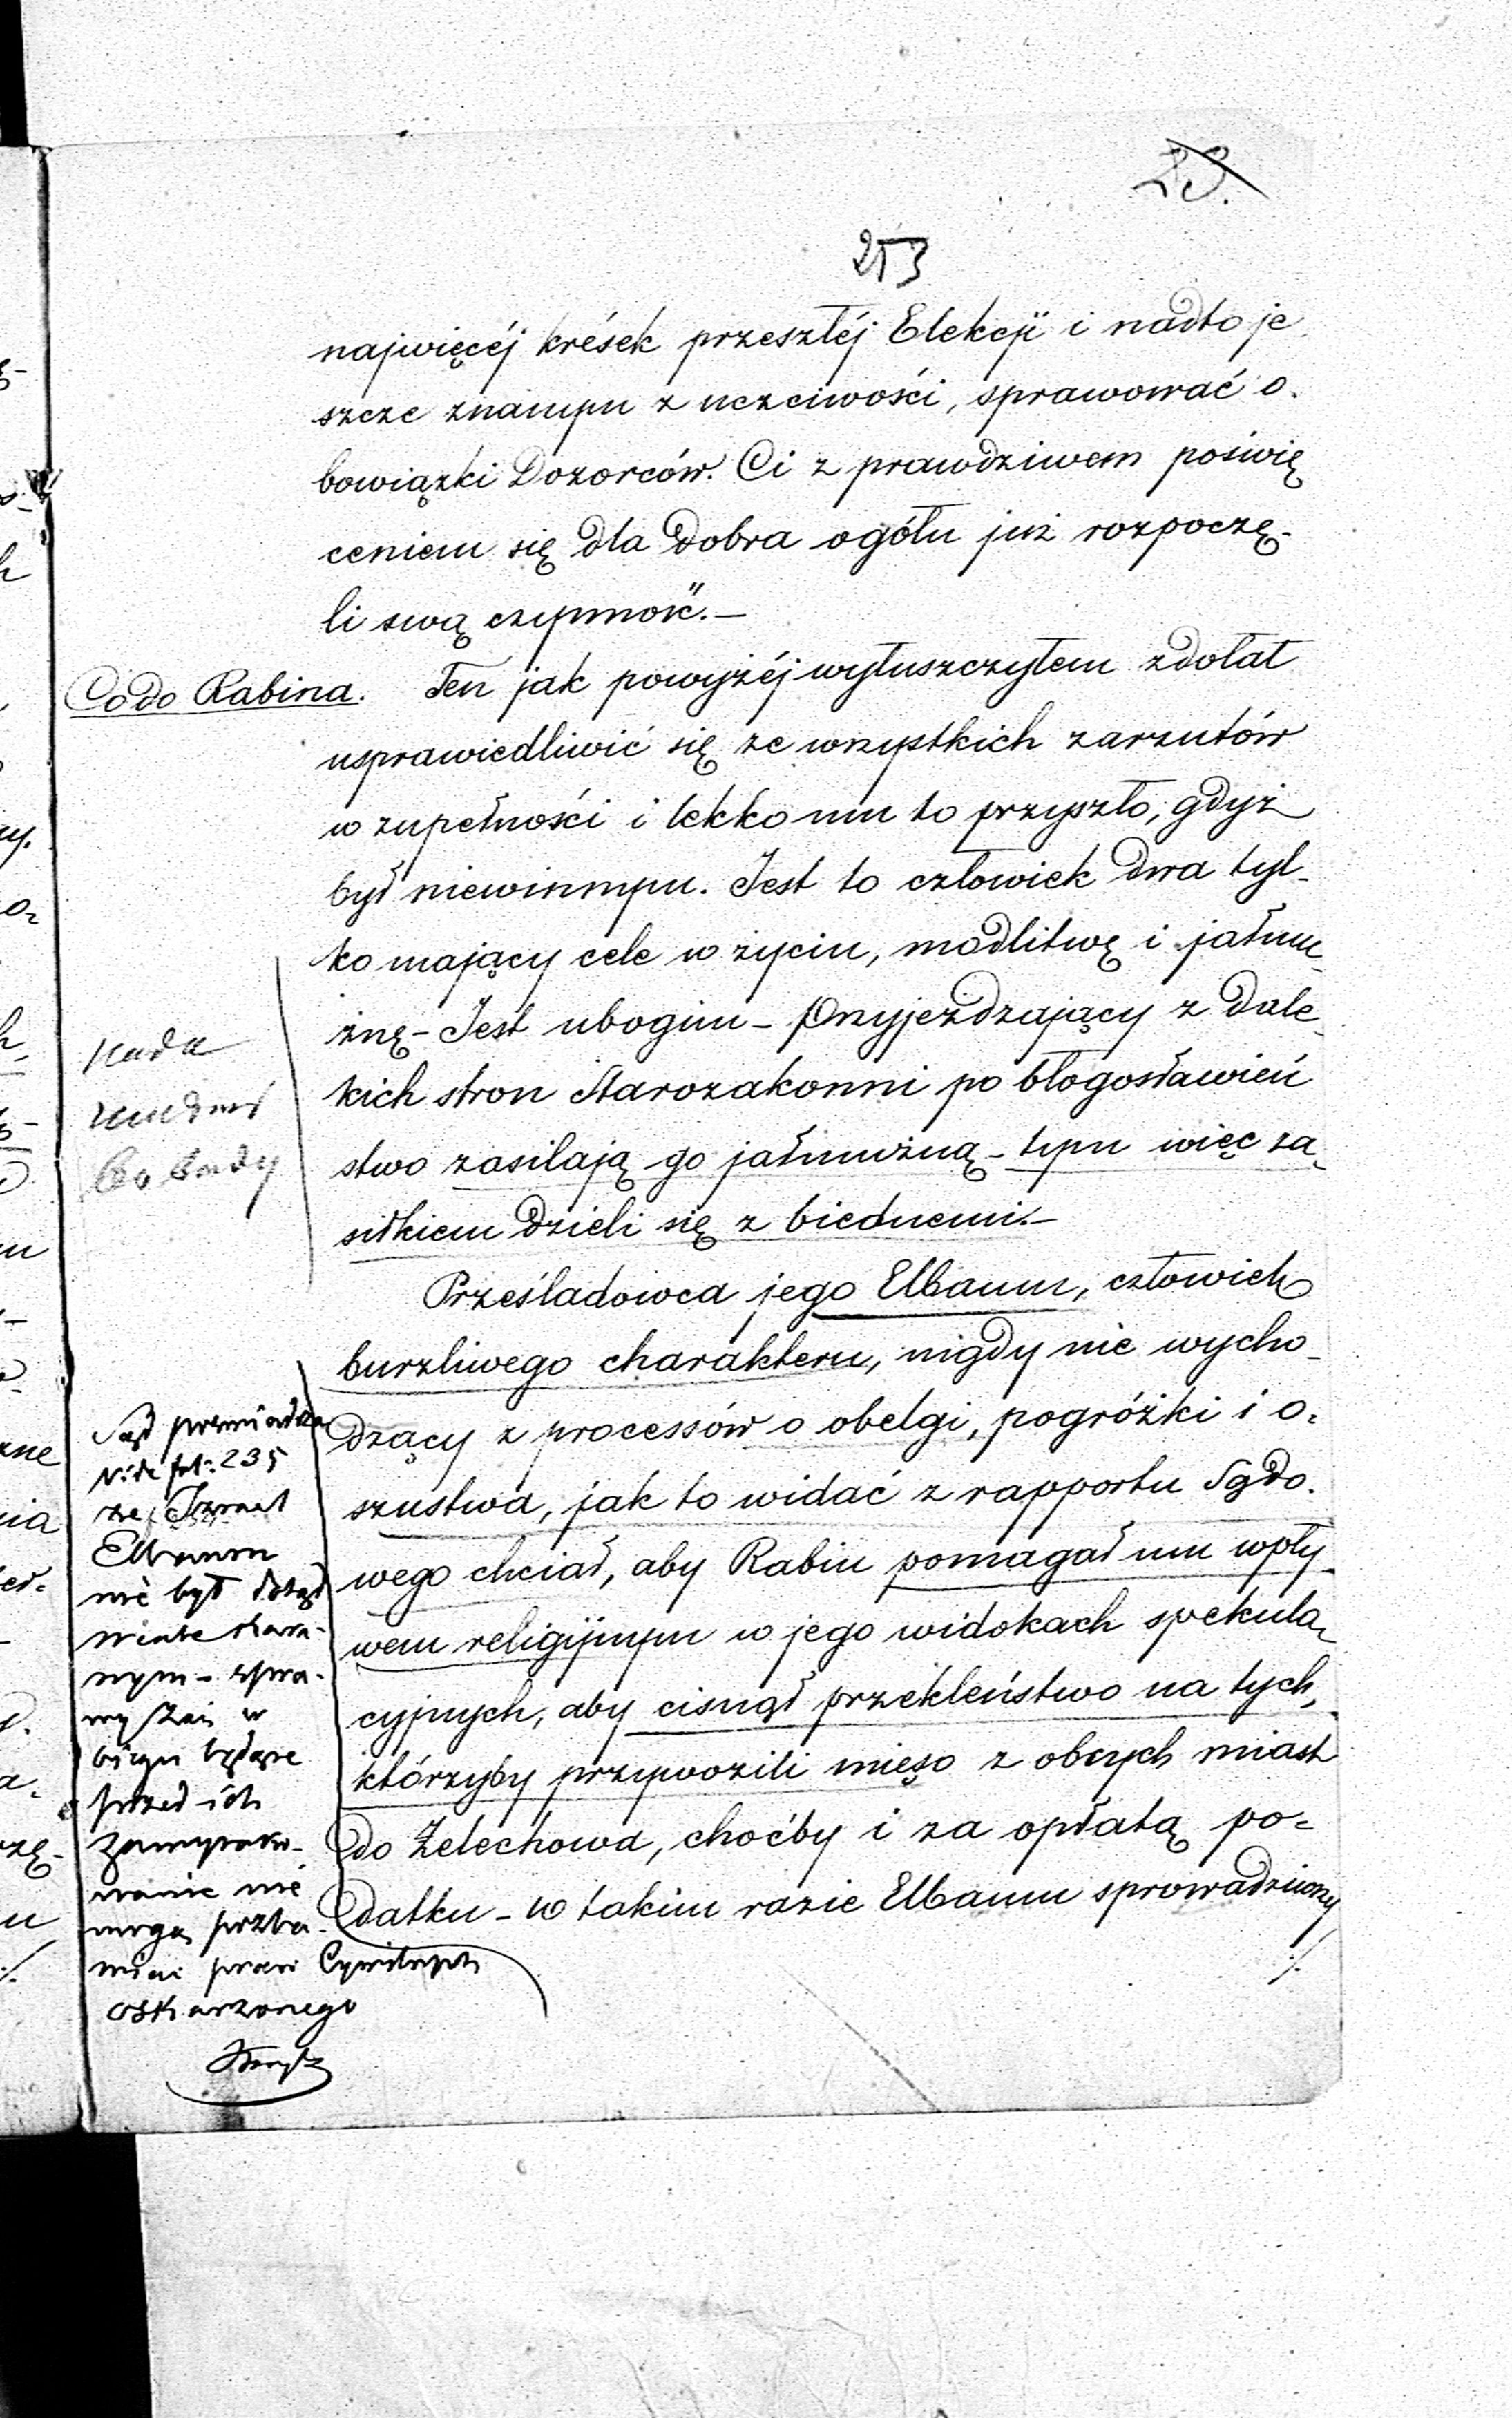 23.
253
najwięcéj krések przeszłéj Elekcji i nadto je
szcze znanym z uczciwości, sprawować o.
bowiązki Dozorców. Ci z prawdziwem poświę
ceniem się dla dobra ogółu już rozpoczę-
li swą czynność.—
Co do Rabina. Ten jak powyżéj wyłuszczyłem zdołał
usprawiedliwić się ze wszystkich zarzutów
w zupełności i lekko mu to przyszło, gdyż
był niewinnym. Jest to człowiek dwa tyl-
ko mający cele w życiu, modlitwę i jałmu
żnę - Jest ubogim - Przyjeżdzający z dale
kich stron Starozakonni po błogosławień
stwo zasilają go jałmużną - tym więc za
siłkiem dzieli się z biednemi.—
Prześladowca jego Elbaum, człowiek
burzliwego charakteru, nigdy nie wycho-
dzący z processów o obelgi, pogróżki i o-
szustwa, jak to widać z rapportu Sądo.
wego chciał, aby Rabin pomagał mu wpły-
wem religijnym w jego widokach spekula
cyjnych, aby cisnął przekleństwo na tych,
którzyby przywozili mięso z obcych miast
do Żelechowa, choćby i za opłatą po-
datku - w takim razie Elbaum sprowadziwszy
./.
Sąd poświadcza
vide fol: 235
że Izrael
Elbaum
nie był dotąd
nym - spra-
wy zaś w
biegu będące
przed ich
nie
mogą pozba-
wiać praw Cywilnych
oskarzonego